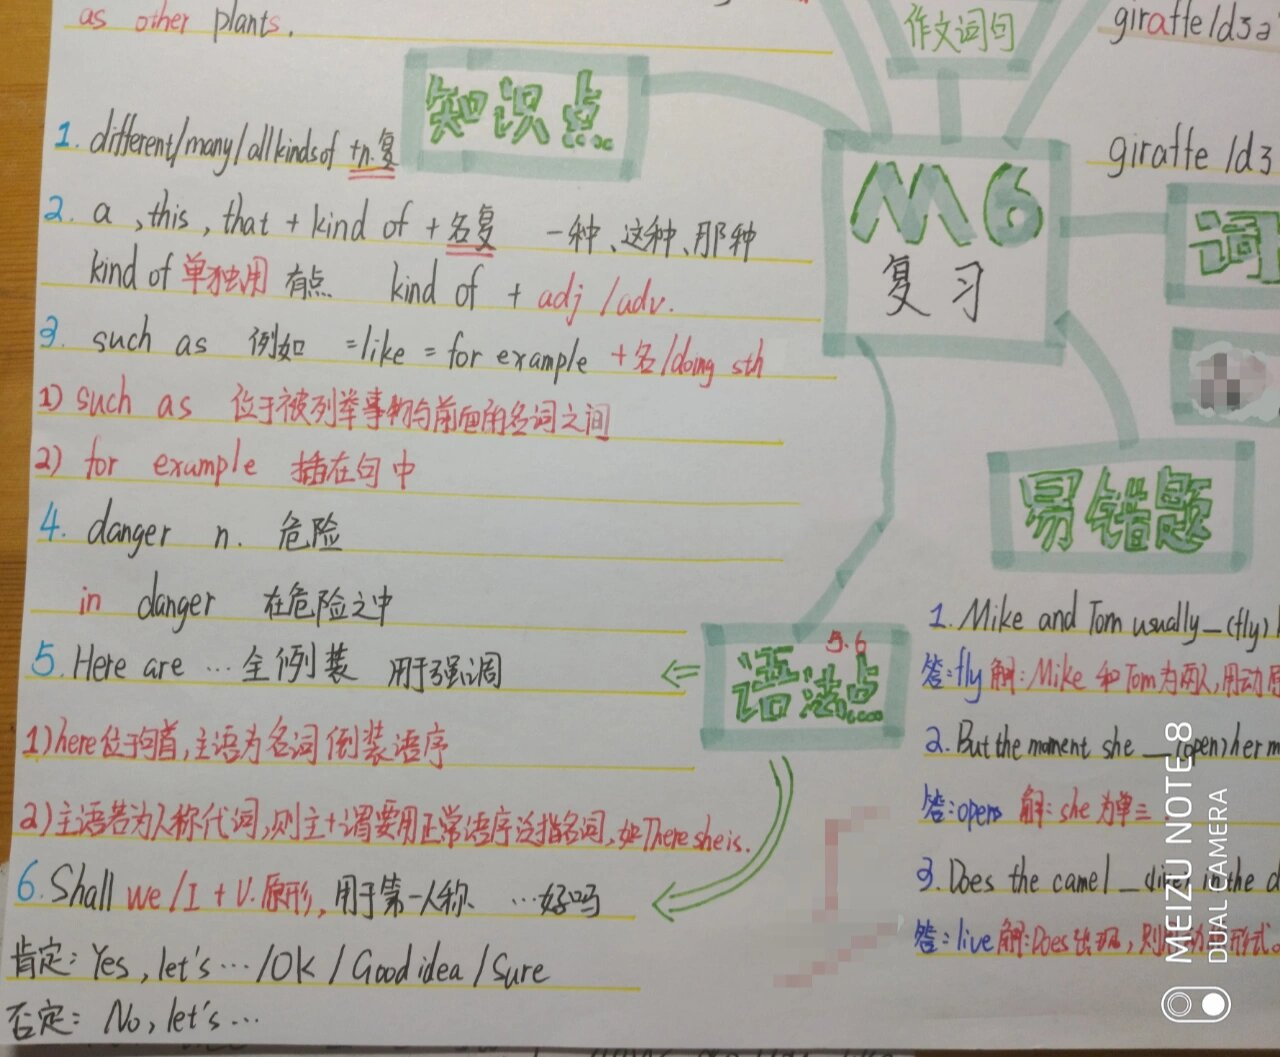 as other plants.
作文词句
giraffe /dʒɪ
知识点
1. different/many/all kinds of +n.复
M6
复习
giraffe /dʒ
词
2. a ,this, that + kind of + 名复 一种、这种、那种
kind of 单独用 有点 kind of + adj /adv.
3. such as 例如 =like = for example +名/doing sth
1) such as 位于被列举事物与前面的名词之间
2) for example 插在句中
易错题
4. danger n. 危险
in danger 在危险之中
5. Here are … 全倒装 用于强调
1) here位于句首,主语为名词 倒装语序
2) 主语若为人称代词,则主+谓要用正常语序 泛指名词,如There she is.
语法点
5.6
6. Shall we /I + V.原形, 用于第一人称 …好吗
肯定: Yes, let's … /OK / Good idea / Sure
否定: No, let's …
1. Mike and Tom usually _ (fly)
答:fly 解:Mike 和 Tom为两人,用动原
2. But the moment she __ (open) her m
答:opens 解: she 为单三
3. Does the camel _ (live) in the d
答:live 解:Does 形式。
MEIZU NOTE 8
DUAL CAMERA